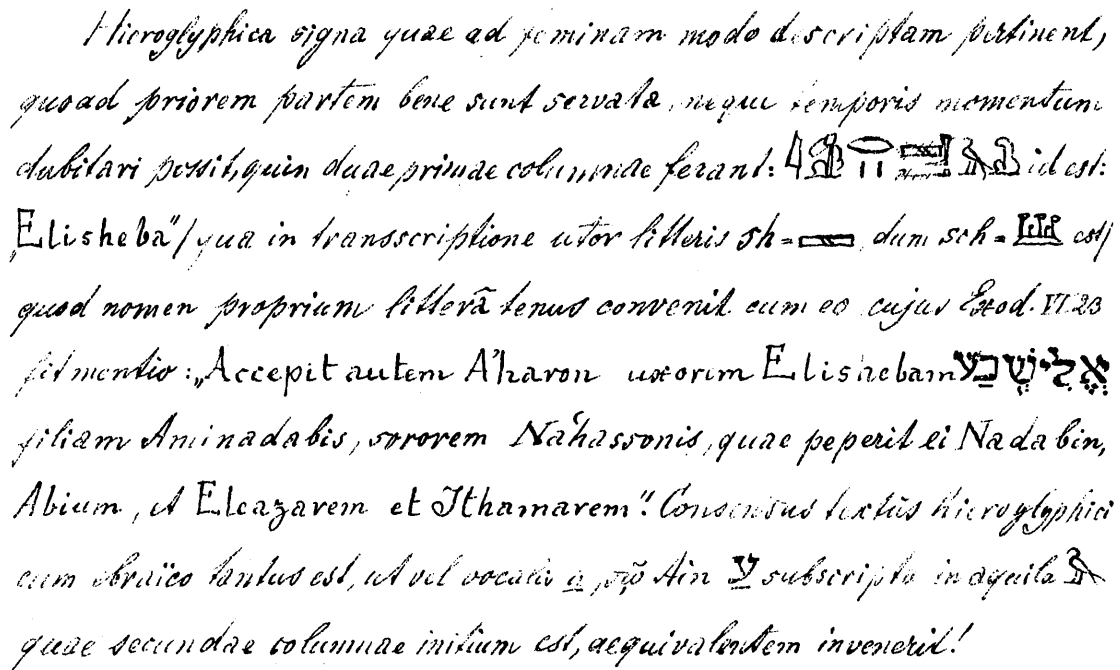 Hieroglyphica signa quae ad feminam modo descriptam pertinent,
quoad priorem partem bene sunt servata, neque temporis momentum
dubitari possit, quin duae primae columnae ferant: id est:
Elisheba"/qua in transscriptione utor litteris sh = dum sch = est/
quod nomen proprium litterā tenus convenit cum eo cujus Exod. VI 23
fit mentio: „Accepit autem A'haron uxorem Elishebam אֱלִישֶׁבַע
filiam Aminadabis, sororem Na'hassonis, quae peperit ei Nadabin,
Abium, et Eleazarem et Ithamarem". Consensus textûs hieroglyphici
cum ebraïco tantus est, ut vel vocalis a, Ain עַ subscripta in aquila
quae secundae columnae initium est, aequivalentem invenerit!